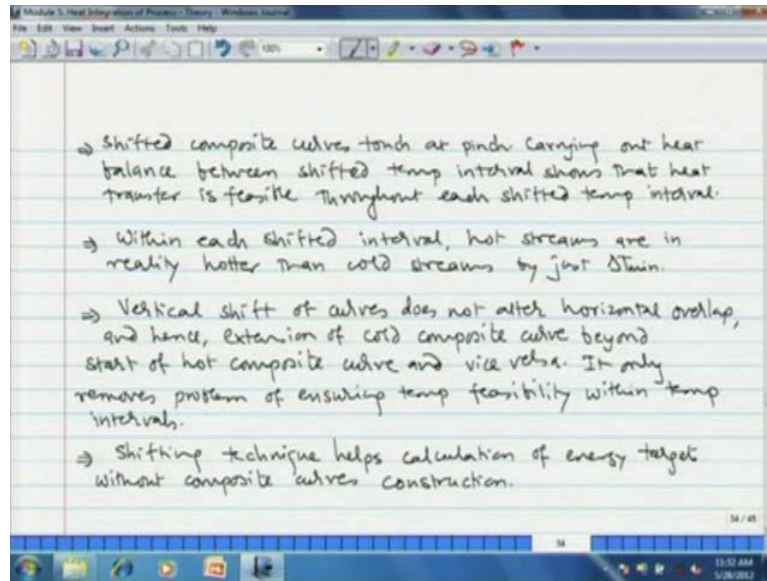 Module 5. Heat Integration of Process - Theory - Windows Journal
File Edit View Insert Actions Tools Help
100%
⇒ Shifted composite curves touch at pinch. Carrying out heat
balance between shifted temp interval shows that heat
transfer is feasible throughout each shifted temp interval.
⇒ Within each shifted interval, hot streams are in
reality hotter than cold streams by just ΔTmin.
⇒ Vertical shift of curves does not alter horizontal overlap,
and hence, extension of cold composite curve beyond
start of hot composite curve and vice versa. It only
removes problem of ensuring temp feasibility within temp
intervals.
⇒ Shifting technique helps calculation of energy target
without composite curves construction.
34 / 45
34
11:52 AM
5/28/2012